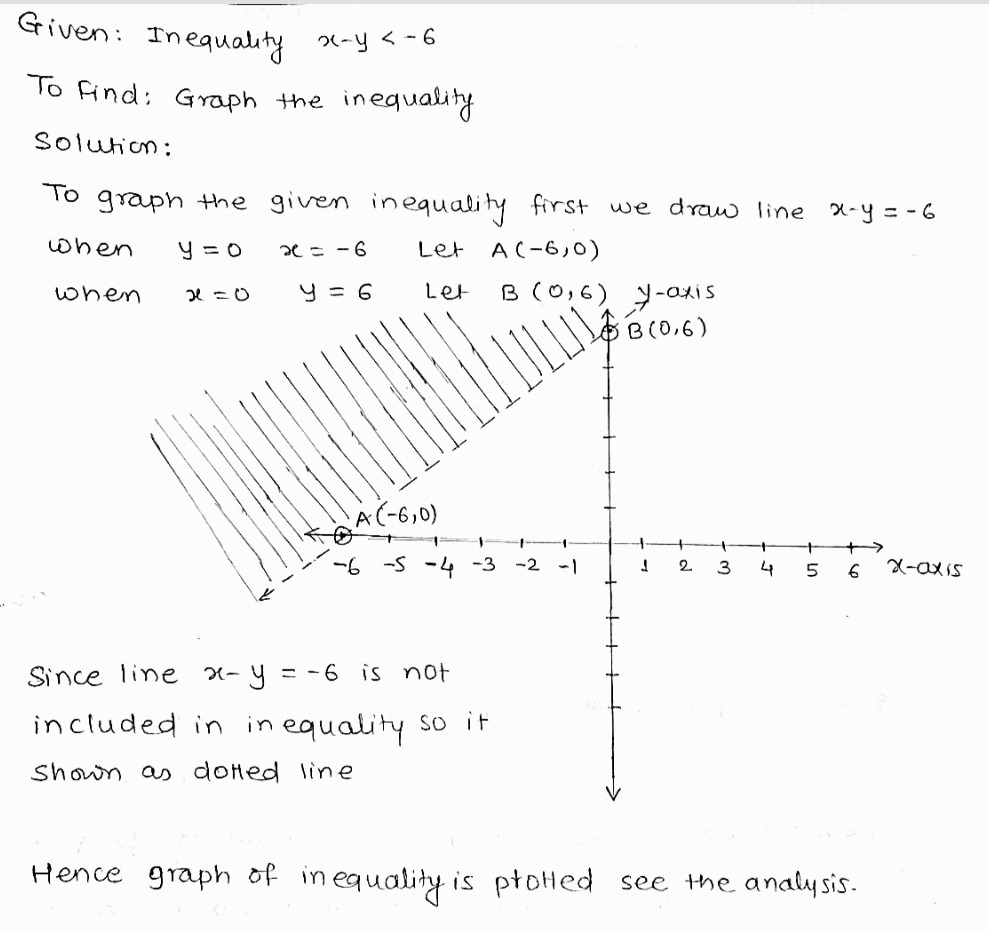 Given: Inequality x-y < -6
To find: Graph the inequality
Solution:
To graph the given inequality first we draw line x-y = -6
when y = 0 x = -6 Let A(-6,0)
when x = 0 y = 6 Let B (0,6)
y-axis
B(0,6)
A(-6,0)
-6 -5 -4 -3 -2 -1 1 2 3 4 5 6 x-axis
Since line x-y = -6 is not
included in inequality so it
shown as dotted line
Hence graph of inequality is ptotted see the analysis.